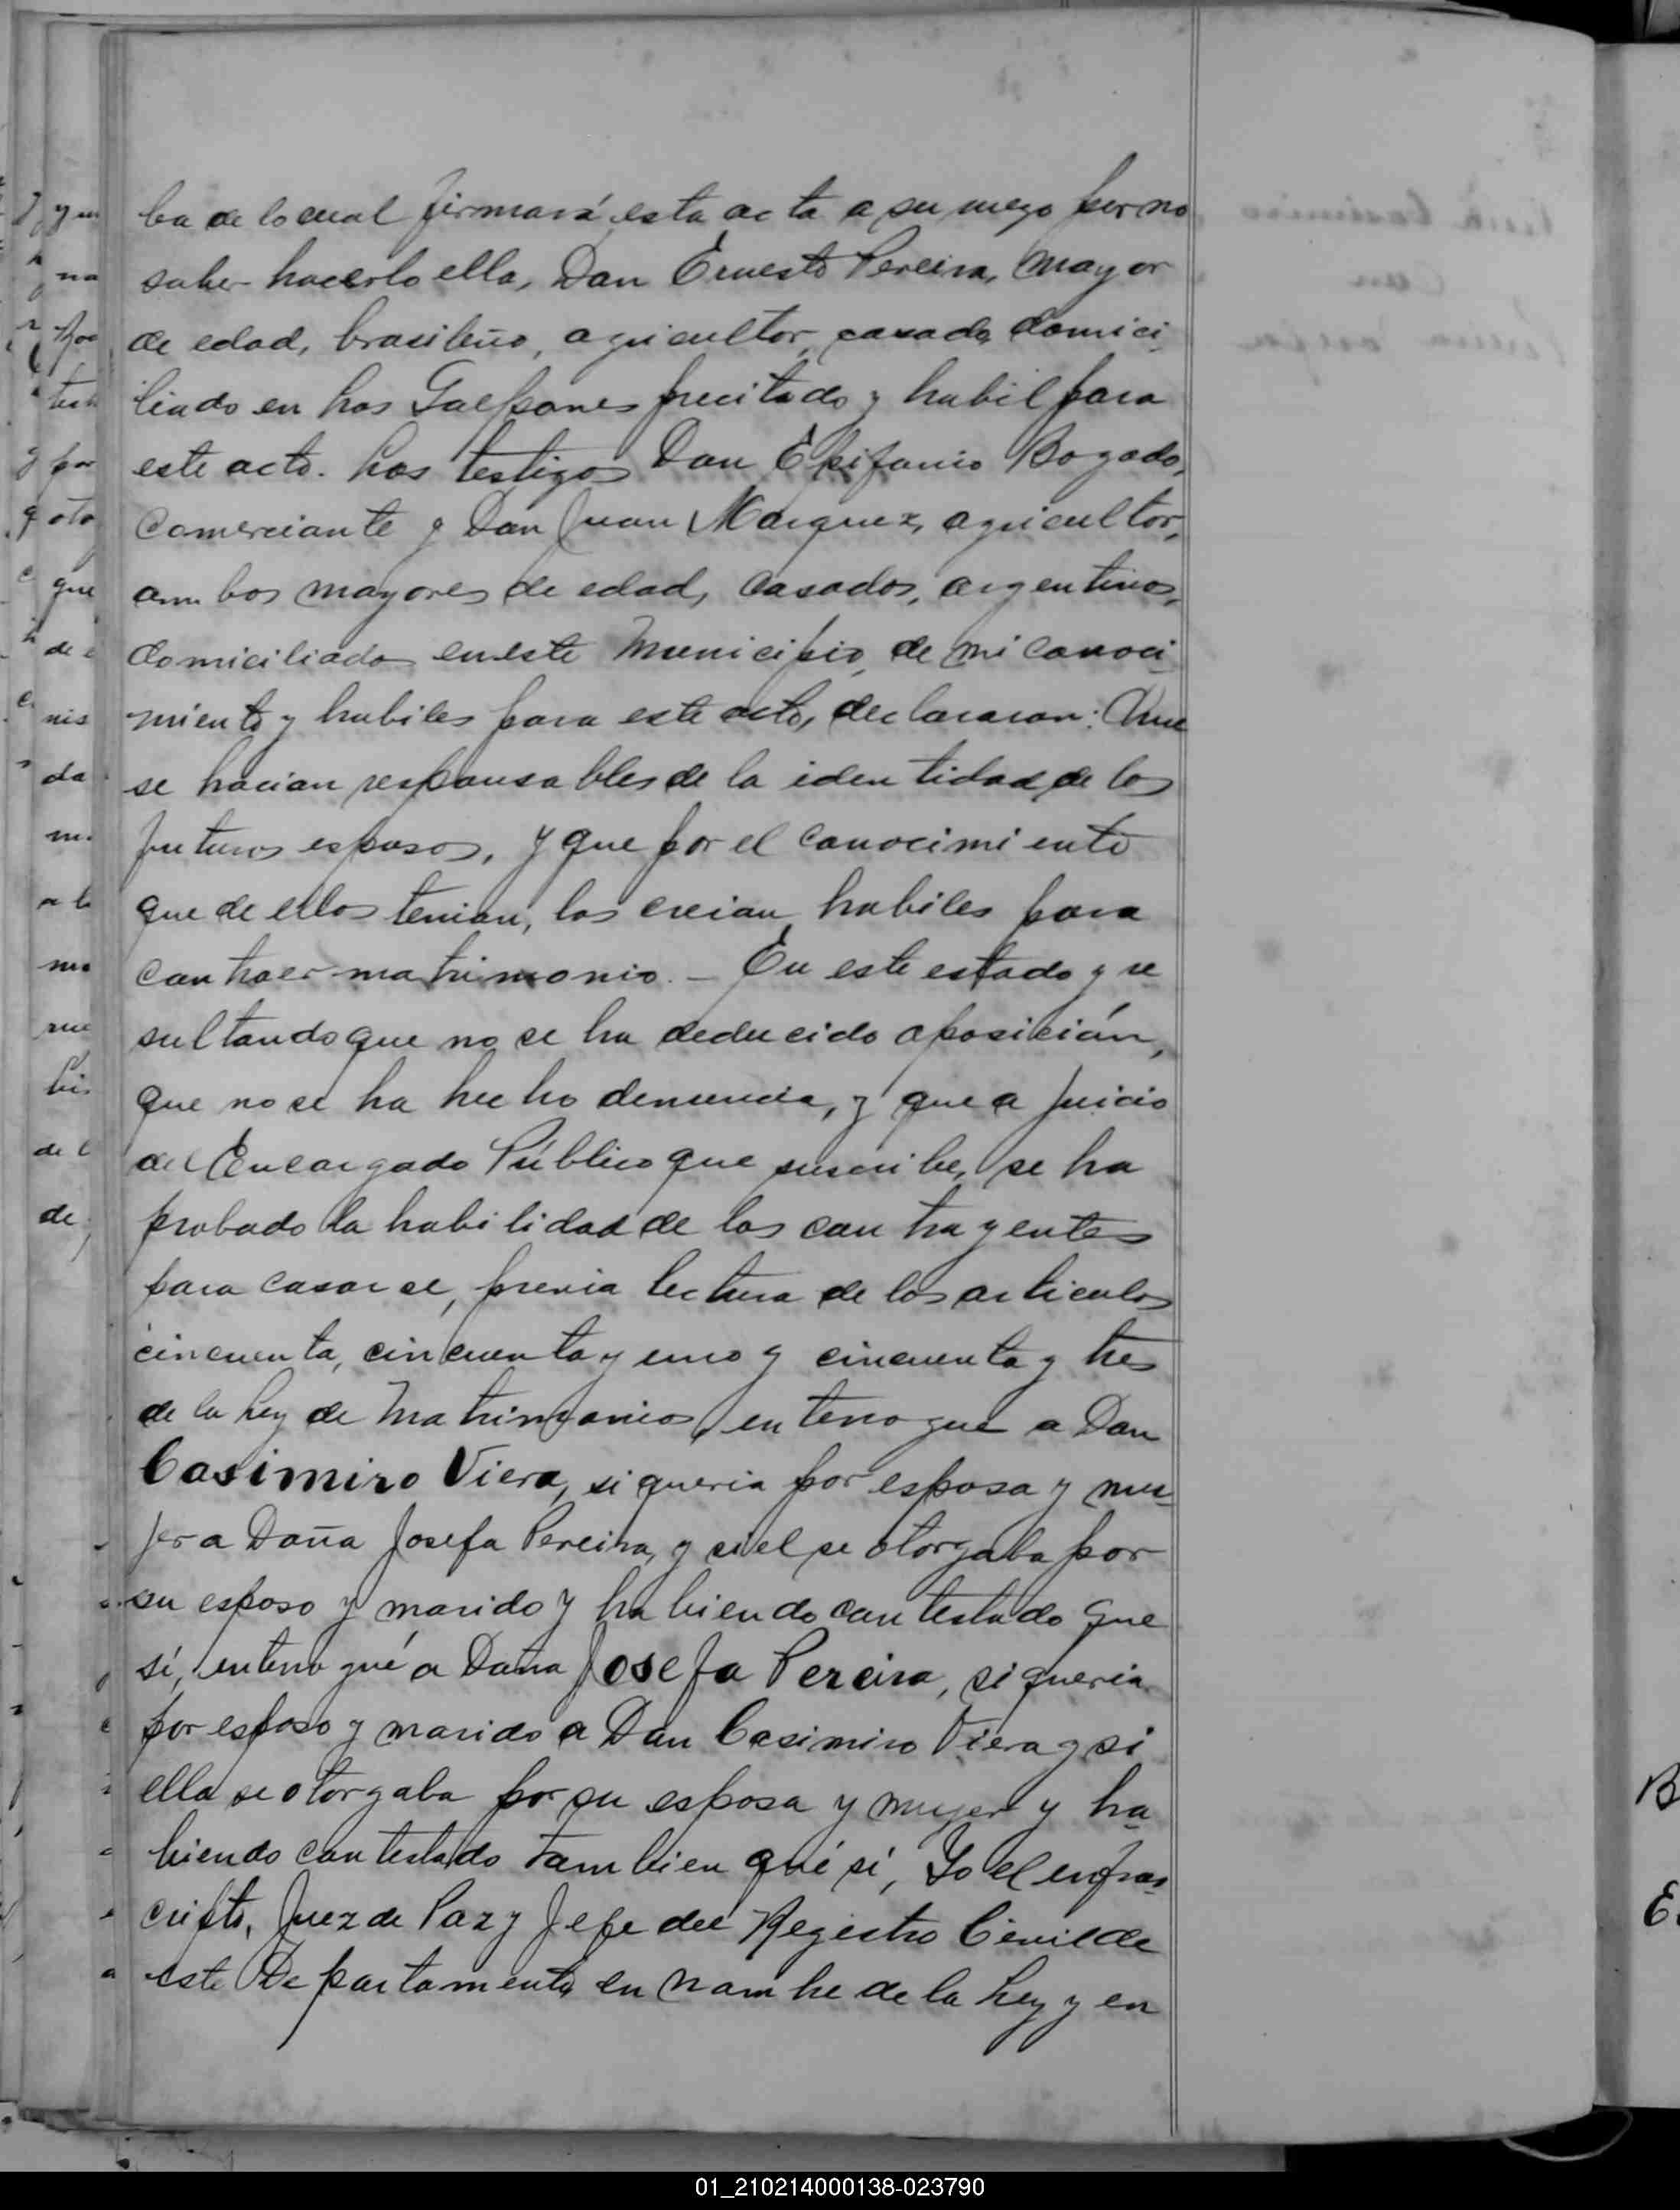 ba de lo cual firmará esta acta a su ruego por no
saber hacerlo ella, Don Ernesto Pereira, mayor
de edad, brasileño, agricultor, casado, domici
liado en Los Galpones precitado y habil para
este acto. Los testigos Don Epifanio Bogado,
comerciante y Don Juan Marquez, agricultor,
ambos mayores de edad, casados, argentinos,
domiciliados en este Municipio, de mi conoci
miento y habiles para este acto, declararon: Que
se hacian responsables de la identidad de los
futuros esposos, y que por el conocimiento
que de ellos tenian, los creian habiles para
contraer matrimonio. — En este estado y re
sultando que no se ha deducido oposición,
que no se ha hecho denuncia, y que a juicio
del Encargado Público que suscribe, se ha
probado la habilidad de los contrayentes
para casarse, previa lectura de los articulos
cincuenta, cincuenta y uno y cincuenta y tres
de la Ley de Matrimonios, interrogue a Don
Casimiro Viera, si queria por esposa y mu-
jer a Doña Josefa Pereira, y si el se otorgaba por
su esposo y marido y habiendo contestado que
sí, interrogué a Doña Josefa Pereira, si queria
por esposo y marido a Don Casimiro Viera y si
ella se otorgaba por su esposa y mujer y ha-
biendo contestado tambien qué sí, Yo el infras-
cripto, Juez de Paz y Jefe del Registro Civil de
este Departamento, en nombre de la Ley y en
01_210214000138-023790